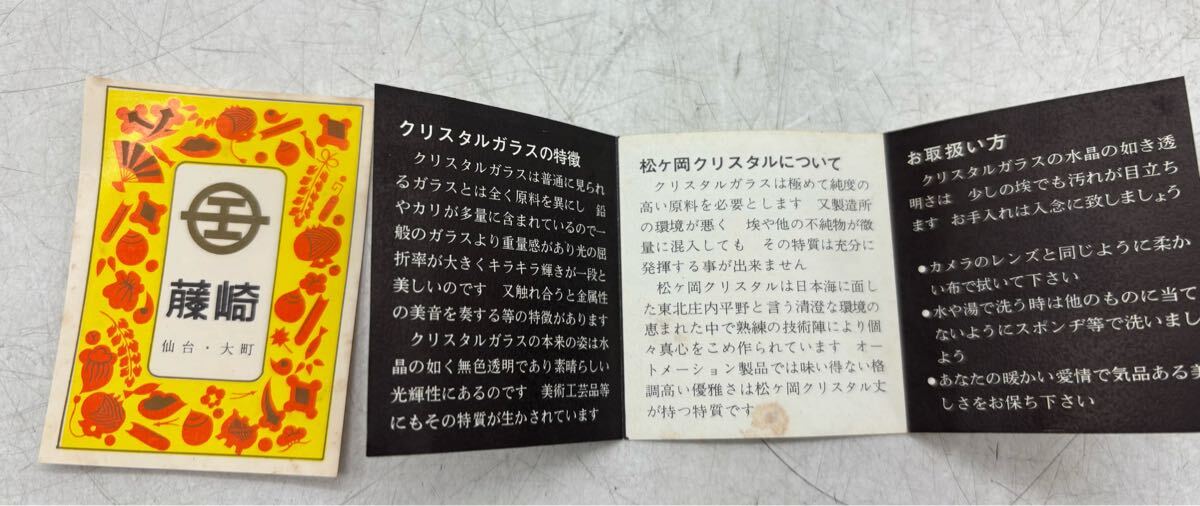 藤崎
仙台・大町
クリスタルガラスの特徴
クリスタルガラスは普通に見られ
るガラスとは全く原料を異にし 鉛
やカリが多量に含まれているので一
般のガラスより重量感があり光の屈
折率が大きくキラキラ輝きが一段と
美しいのです 又触れ合うと金属性
の美音を奏する等の特徴があります
クリスタルガラスの本来の姿は水
晶の如く無色透明であり素晴らしい
光輝性にあるのです 美術工芸品等
にもその特質が生かされています
松ケ岡クリスタルについて
クリスタルガラスは極めて純度の
高い原料を必要とします 又製造所
の環境が悪く 埃や他の不純物が微
量に混入しても その特質は充分に
発揮する事が出来ません
松ケ岡クリスタルは日本海に面し
た東北庄内平野と言う清澄な環境の
恵まれた中で熟練の技術陣により個
々真心をこめ作られています オー
トメーション製品では味い得ない格
調高い優雅さは松ケ岡クリスタル丈
が持つ特質です
お取扱い方
クリスタルガラスの水晶の如き透
明さは 少しの埃でも汚れが目立ち
ます お手入れは入念に致しましょう
●カメラのレンズと同じように柔か
い布で拭いて下さい
●水や湯で洗う時は他のものに当て
ないようにスポンヂ等で洗いまし
ょう
●あなたの暖かい愛情で気品ある美
しさをお保ち下さい